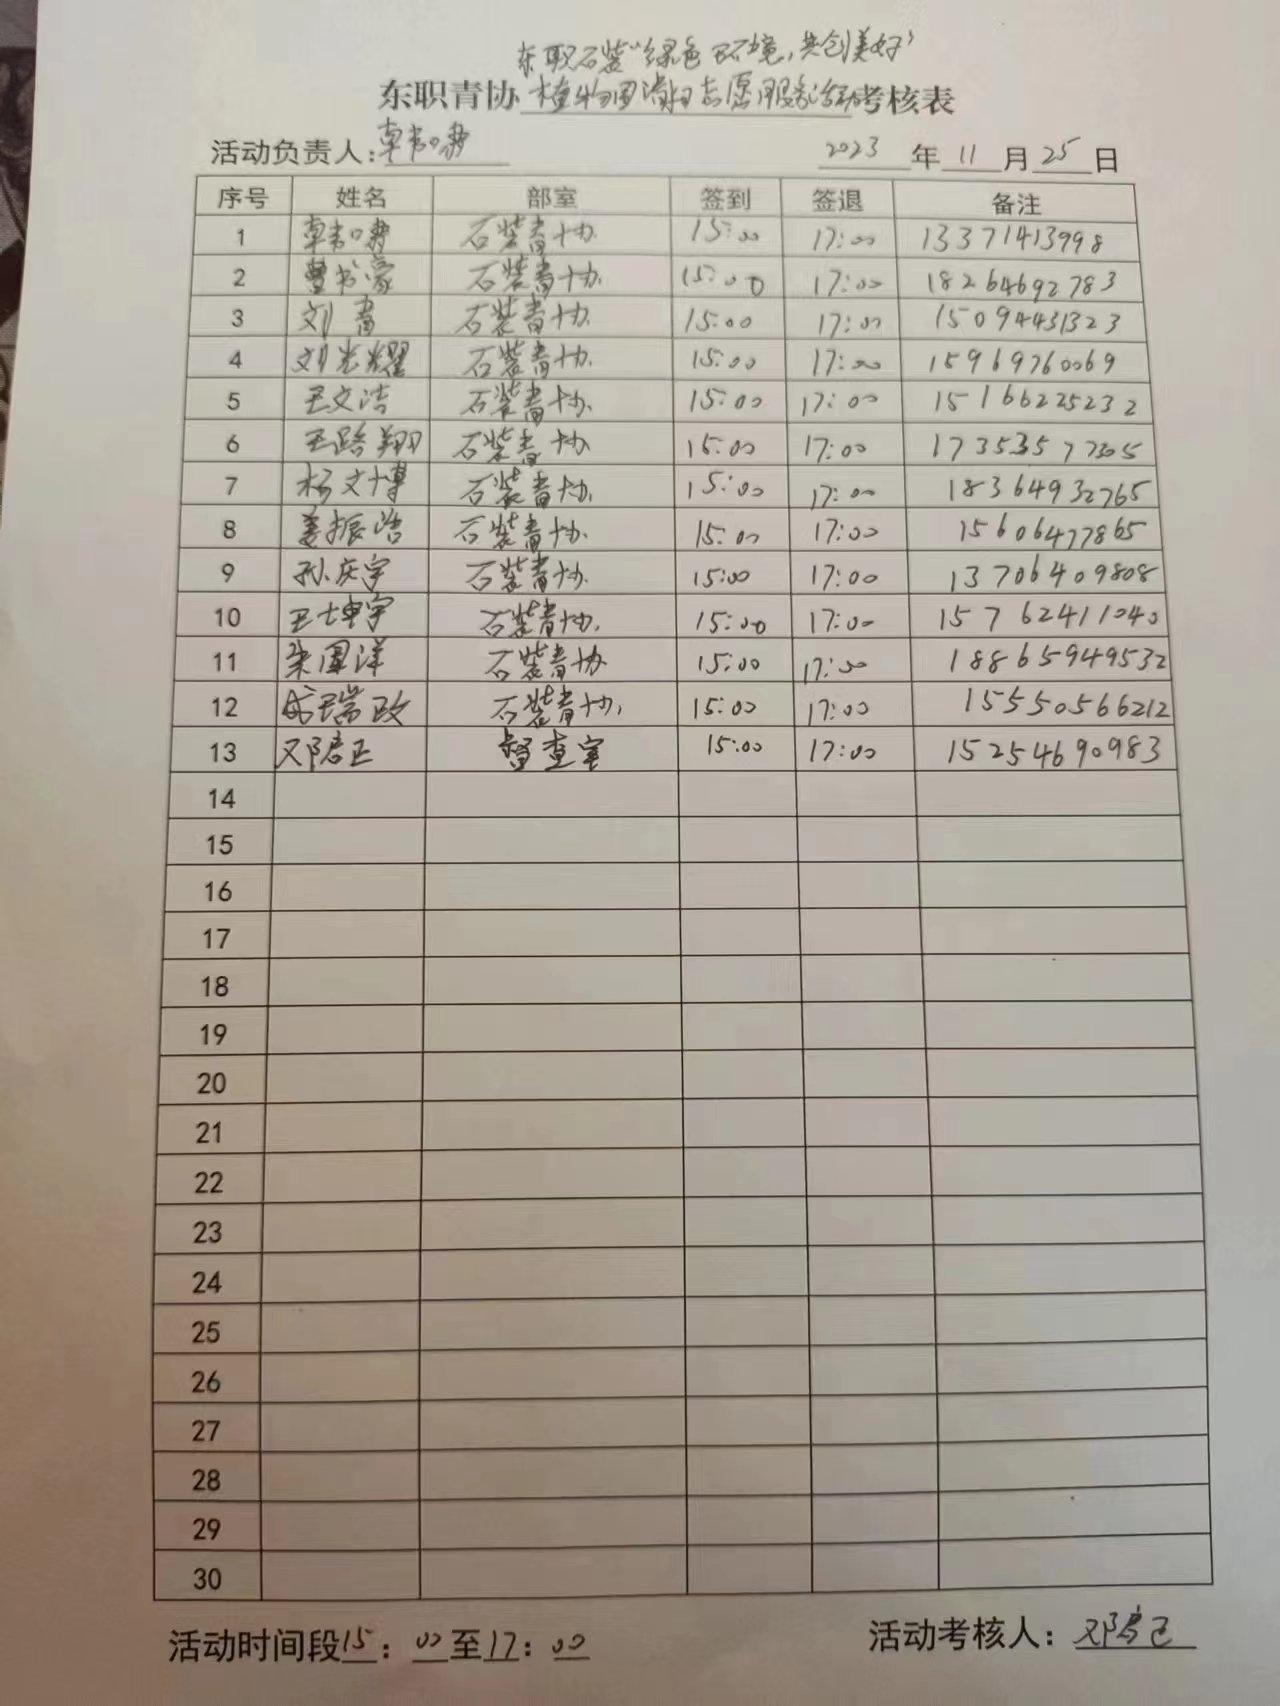 东职石装“绿色环境，共创美好”
东职青协植物园清扫志愿服务活动考核表
活动负责人：
2023年11月25日
序号 姓名 部室 签到 签退 备注
1 石装青协 15:00 17:00 13371413998
2 石装青协 15:00 17:00 18264692783
3 刘青 石装青协 15:00 17:00 15094431323
4 刘光耀 石装青协 15:00 17:00 15969760069
5 王文洁 石装青协 15:00 17:00 15166225232
6 王路翔 石装青协 15:00 17:00 17353577305
7 杨文博 石装青协 15:00 17:00 18364932765
8 姜振浩 石装青协 15:00 17:00 15606477865
9 孙庆宇 石装青协 15:00 17:00 13706409808
10 王士坤宇 石装青协 15:00 17:00 15762411040
11 朱国洋 石装青协 15:00 17:00 18865949532
12 成瑞政 石装青协 15:00 17:00 15550566212
13 邓君正 督查室 15:00 17:00 15254690983
14
15
16
17
18
19
20
21
22
23
24
25
26
27
28
29
30
活动时间段15：00至17：00
活动考核人：邓君正